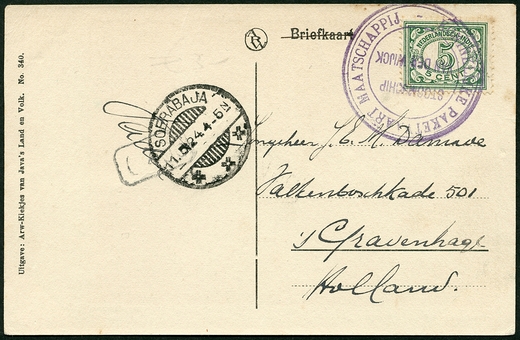 Briefkaart
KONINKLIJKE PAKETVAART MAATSCHAPPIJ
STOOMSCHIP
VAN DER WIJCK
NEDERLANDSCH-INDIË
5
CENT
SOERABAJA
11.5.24.4-5N
Jongheer J. C. M. Damave
Valkenboschkade 501
's Gravenhage
Holland.
Uitgave: Arw-Kiekjes van Java's Land en Volk. No. 340.